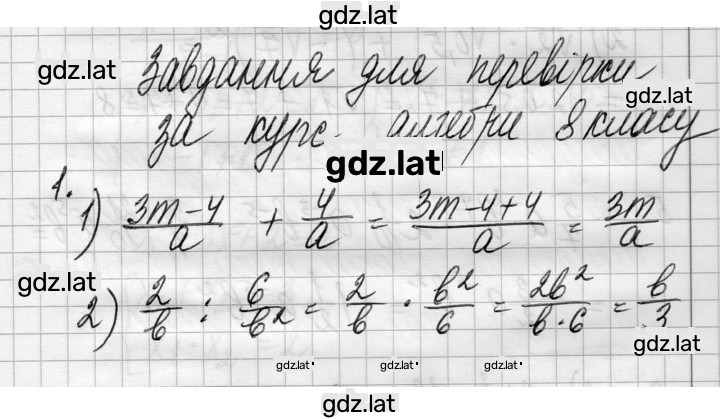 gdz.lat
gdz.lat Завдання для перевірки gdz.lat
за курс алгебри 8 класу
gdz.lat
1. 1) (3m-4)/a + 4/a = (3m-4+4)/a = 3m/a
gdz.lat
2) 2/b : 6/b² = 2/b · b²/6 = 2b²/(b·6) = b/3
gdz.lat
gdz.lat gdz.lat gdz.lat
gdz.lat